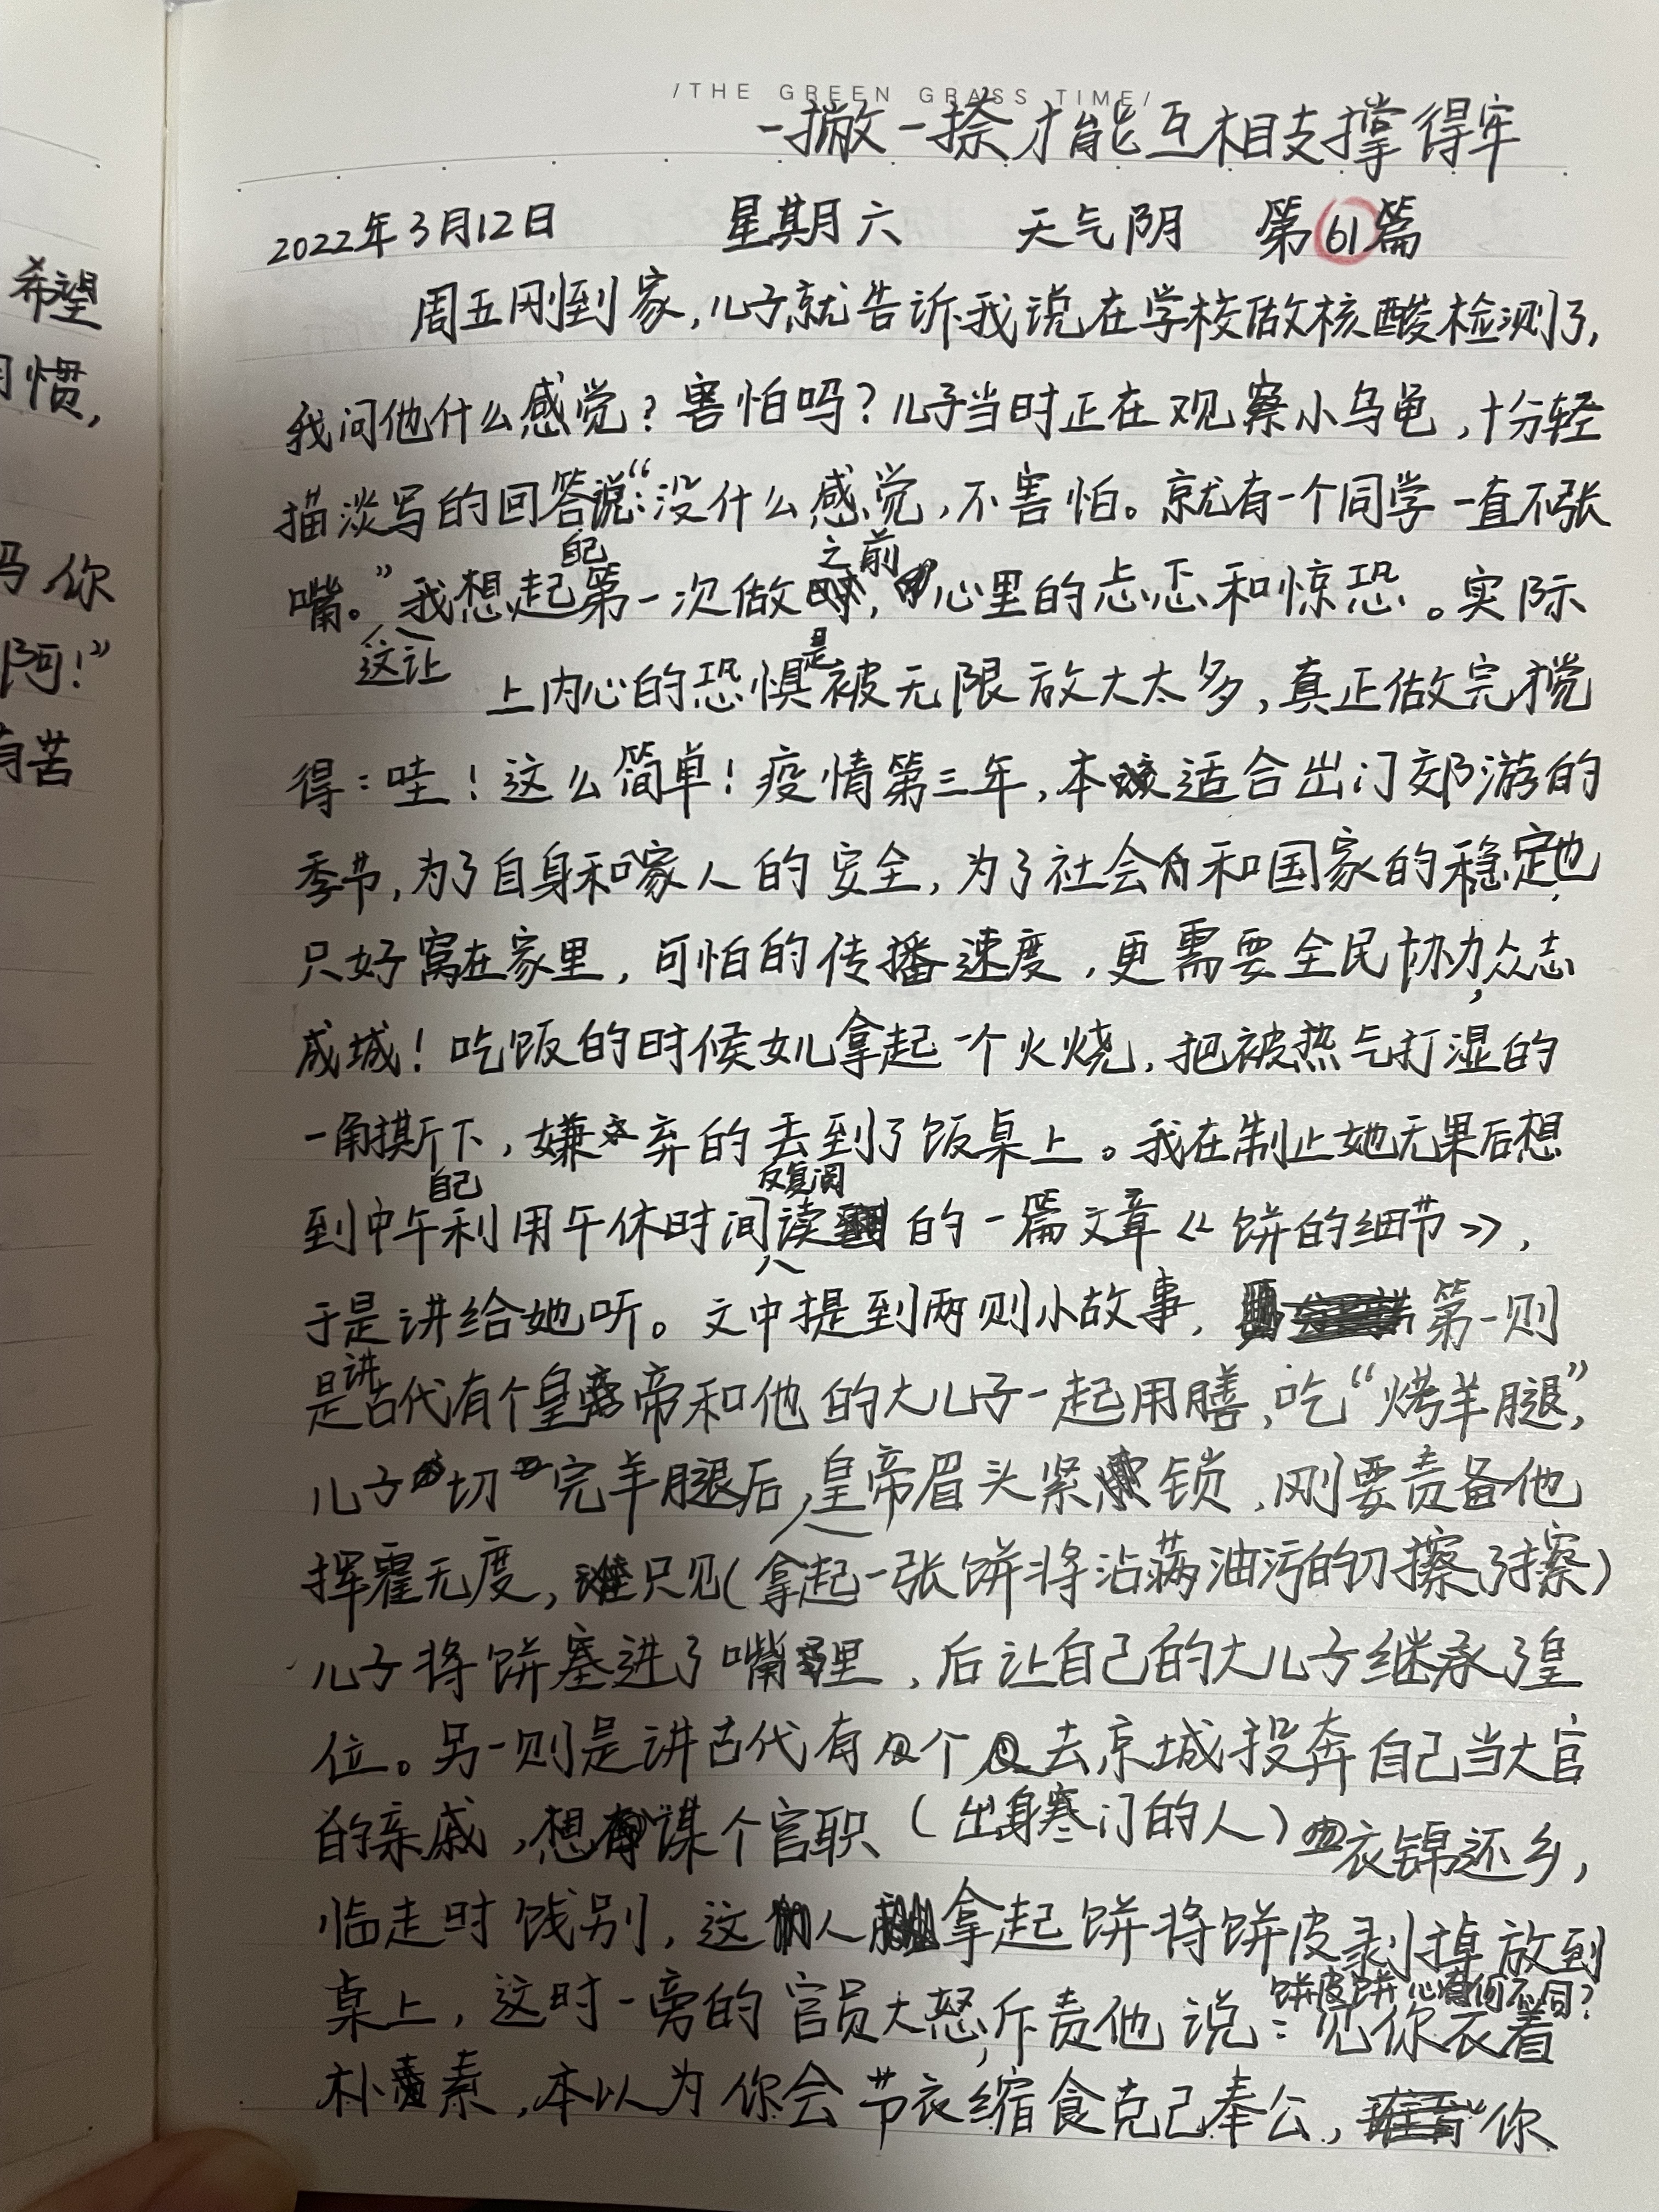 /THE GREEN GRASS TIME/
一撇一捺才能互相支撑得牢
2022年3月12日 星期六 天气阴 第61篇
周五刚到家,儿子就告诉我说在学校做核酸检测了,
我问他什么感觉?害怕吗?儿子当时正在观察小乌龟,十分轻
描淡写的回答说:“没什么感觉,不害怕。就有一个同学一直不张
嘴。”这让我想起自己第一次做之前,心里的忐忑和惊恐。实际
上内心的恐惧是被无限放大太多,真正做完才觉
得:哇!这么简单!疫情第三年,本该适合出门郊游的
季节,为了自身和家人的安全,为了社会和国家的稳定,也
只好窝在家里,可怕的传播速度,更需要全民协力,众志
成城!吃饭的时候女儿拿起一个火烧,把被热气打湿的
一角撕下,嫌弃的丢到了饭桌上。我在制止她无果后想
到中午自己利用午休时间反复阅读的一篇文章《饼的细节》,
于是讲给她听。文中提到两则小故事,第一则
是讲古代有个皇帝和他的大儿子一起用膳,吃“烤羊腿”,
儿子切完羊腿后,皇帝眉头紧锁,刚要责备他
挥霍无度,只见(拿起一张饼将沾满油污的刀擦了擦)
儿子将饼塞进了嘴里,后让自己的大儿子继承了皇
位。另一则是讲古代有个去京城投奔自己当大官
的亲戚,想谋个官职(出身寒门的人)衣锦还乡,
临走时饯别,这人拿起饼将饼皮剥掉放到
桌上,这时一旁的官员大怒,斥责他说:饼皮饼心有何不同?见你衣着
朴素,本以为你会节衣缩食克己奉公,你
希望
惯,
吗 你
阿!”
有苦